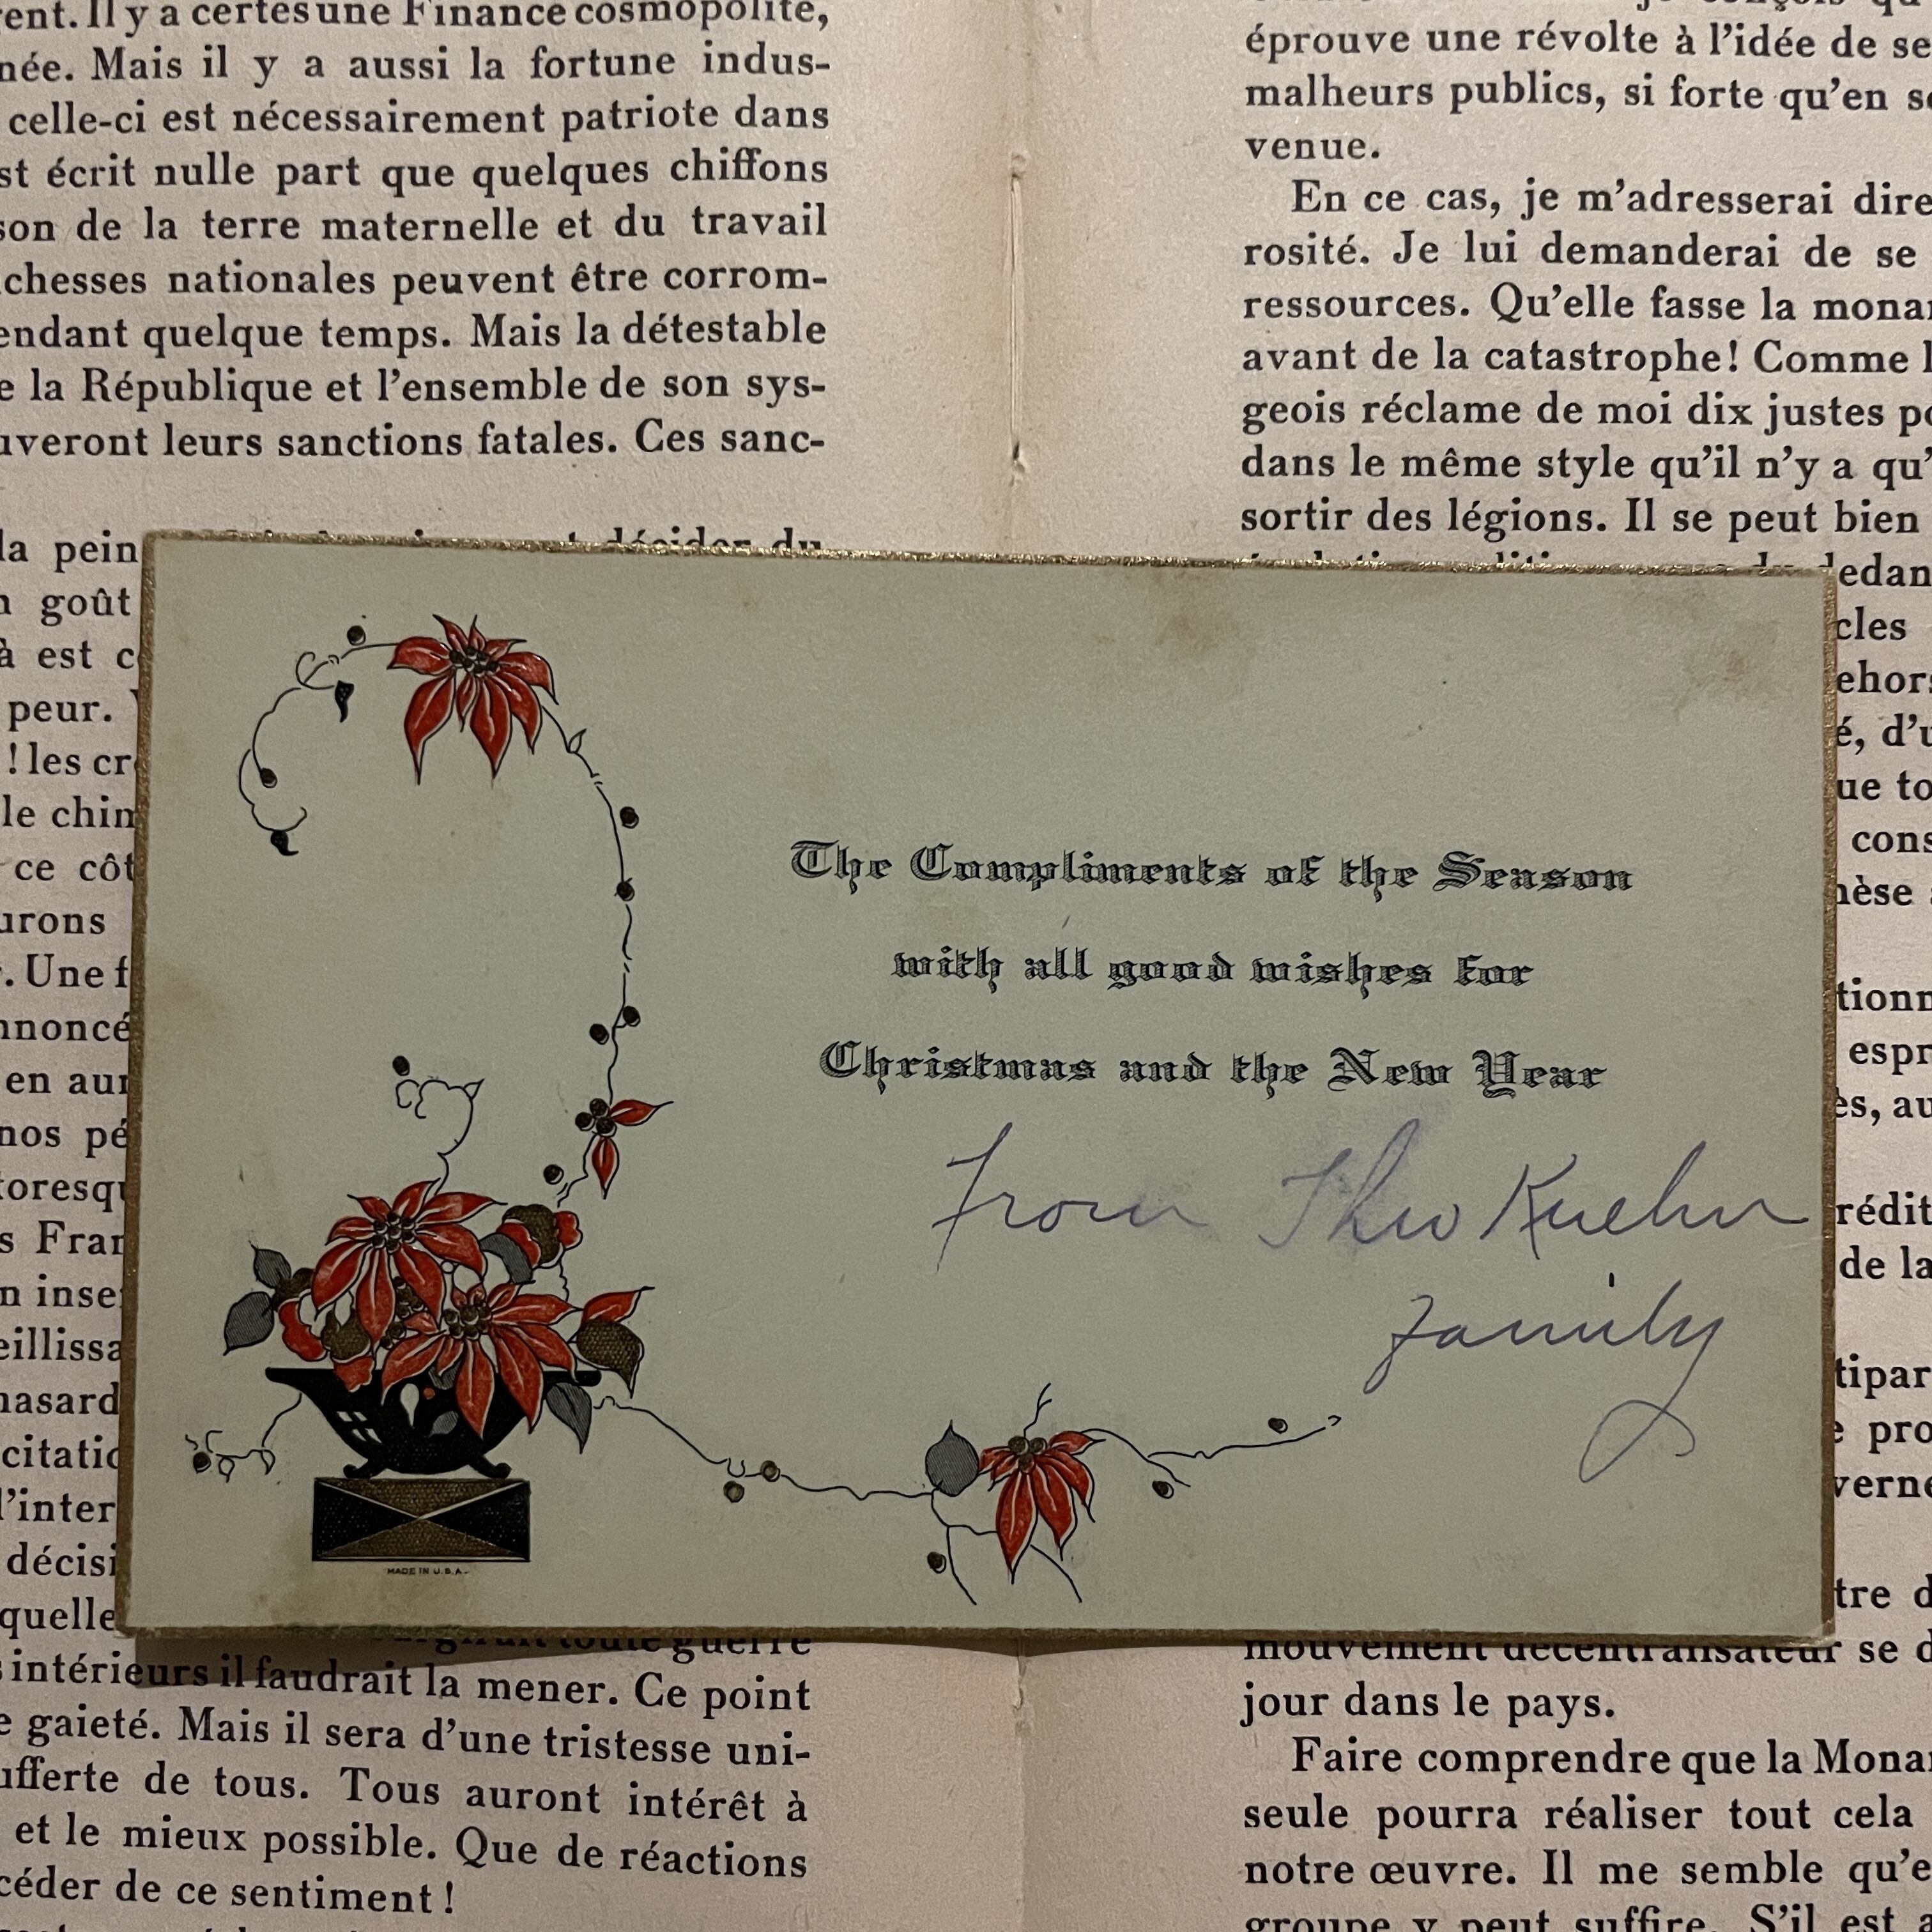 gent. Il y a certes une Finance cosmopolite,
née. Mais il y a aussi la fortune indus-
celle-ci est nécessairement patriote dans
st écrit nulle part que quelques chiffons
son de la terre maternelle et du travail
chesses nationales peuvent être corrom-
endant quelque temps. Mais la détestable
e la République et l'ensemble de son sys-
uveront leurs sanctions fatales. Ces sanc-
la pein
décider du
n goût
à est c
peur.
! les cr
le chim
ce côt
urons
. Une f
nnoncé
en aur
nos pé
toresqu
s Fran
n inse
eillissa
hasard
citatio
l'inter
décisi
quelle
toute guerre
intérieurs il faudrait la mener. Ce point
e gaieté. Mais il sera d'une tristesse uni-
ufferte de tous. Tous auront intérêt à
et le mieux possible. Que de réactions
céder de ce sentiment !
The Compliments of the Season
with all good wishes for
Christmas and the New Year
From Theo Kuehn
Family
MADE IN U.S.A.
éprouve une révolte à l'idée de se
malheurs publics, si forte qu'en s
venue.
En ce cas, je m'adresserai dire
rosité. Je lui demanderai de se
ressources. Qu'elle fasse la monar
avant de la catastrophe! Comme l
geois réclame de moi dix justes po
dans le même style qu'il n'y a qu'
sortir des légions. Il se peut bien
dedan
cles
ehors
é, d'u
ue to
cons
hèse
tionn
espr
ès, au
rédit
de la
tipar
e pro
verne
tre d
mouvement décentralisateur se d
jour dans le pays.
Faire comprendre que la Monar
seule pourra réaliser tout cela
notre œuvre. Il me semble qu'e
groupe y peut suffire. S'il est a